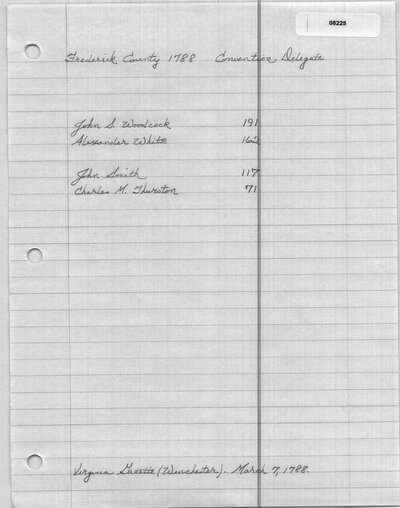 08225
Frederick County 1788 Convention Delegate
John S. Woodcock 191
Alexander White 162
John Smith 117
Charles M. Thurston 71
Virginia Gazette (Winchester). March 7, 1788.